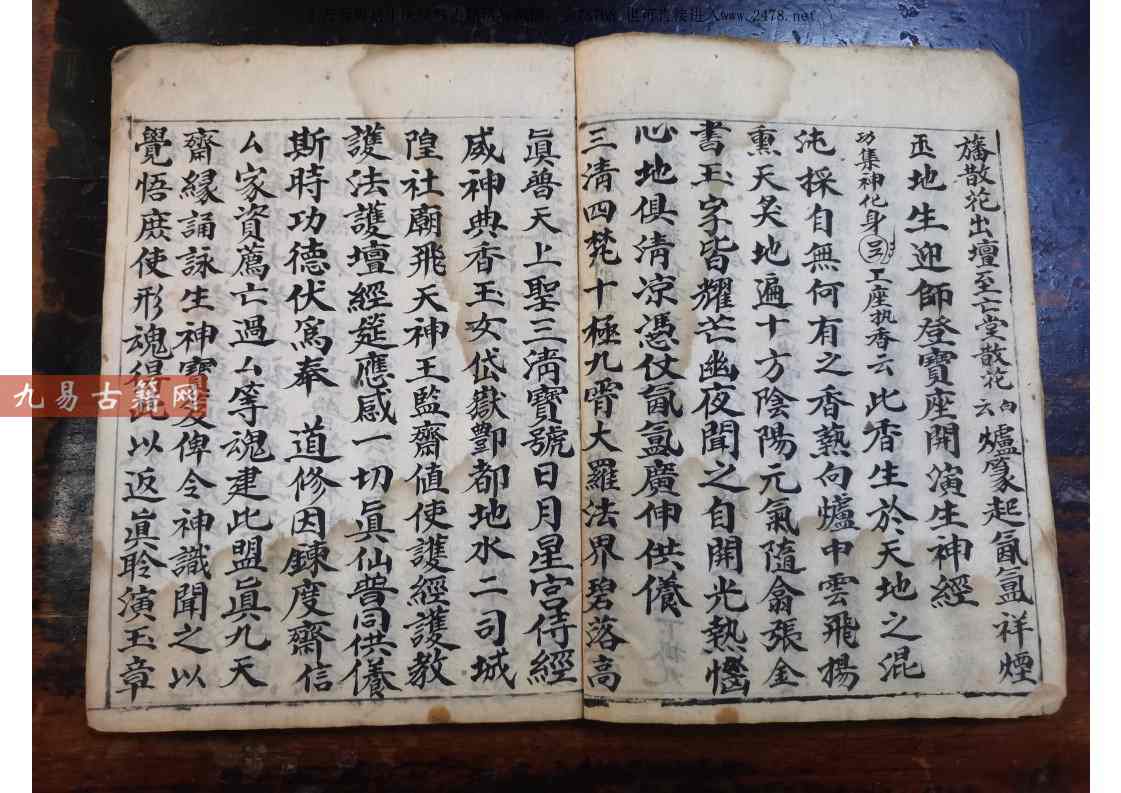 旛散花出壇至亡堂散花向云爐篆起氤氳祥煙
玉地生迎師登寶座開演生神經
功集神化身 工座执香云此香生於天地之混
沌採自無何有之香热向爐中雲飛揚
熏天炙地遍十方陰陽元氣隨翕張金
書玉字皆耀芒幽夜聞之自開光热惱
心地俱清凉憑仗氤氳廣伸供養
三清四梵十極九霄大羅法界碧落高
眞普天上聖三清寶號日月星宮侍經
威神典香玉女岱嶽酆都地水二司城
隍社廟飛天神王監齋値使護經護教
護法護壇經筵應感一切眞仙普同供養
斯時功德伏爲奉 道修因鍊度齋信
厶家資薦亡過厶等魂建此盟眞九天
齋緣誦詠生神寶 俾令神識聞之以
覺悟庶使形魂得 以返眞聆演玉章
九易古籍网
www.2478.net